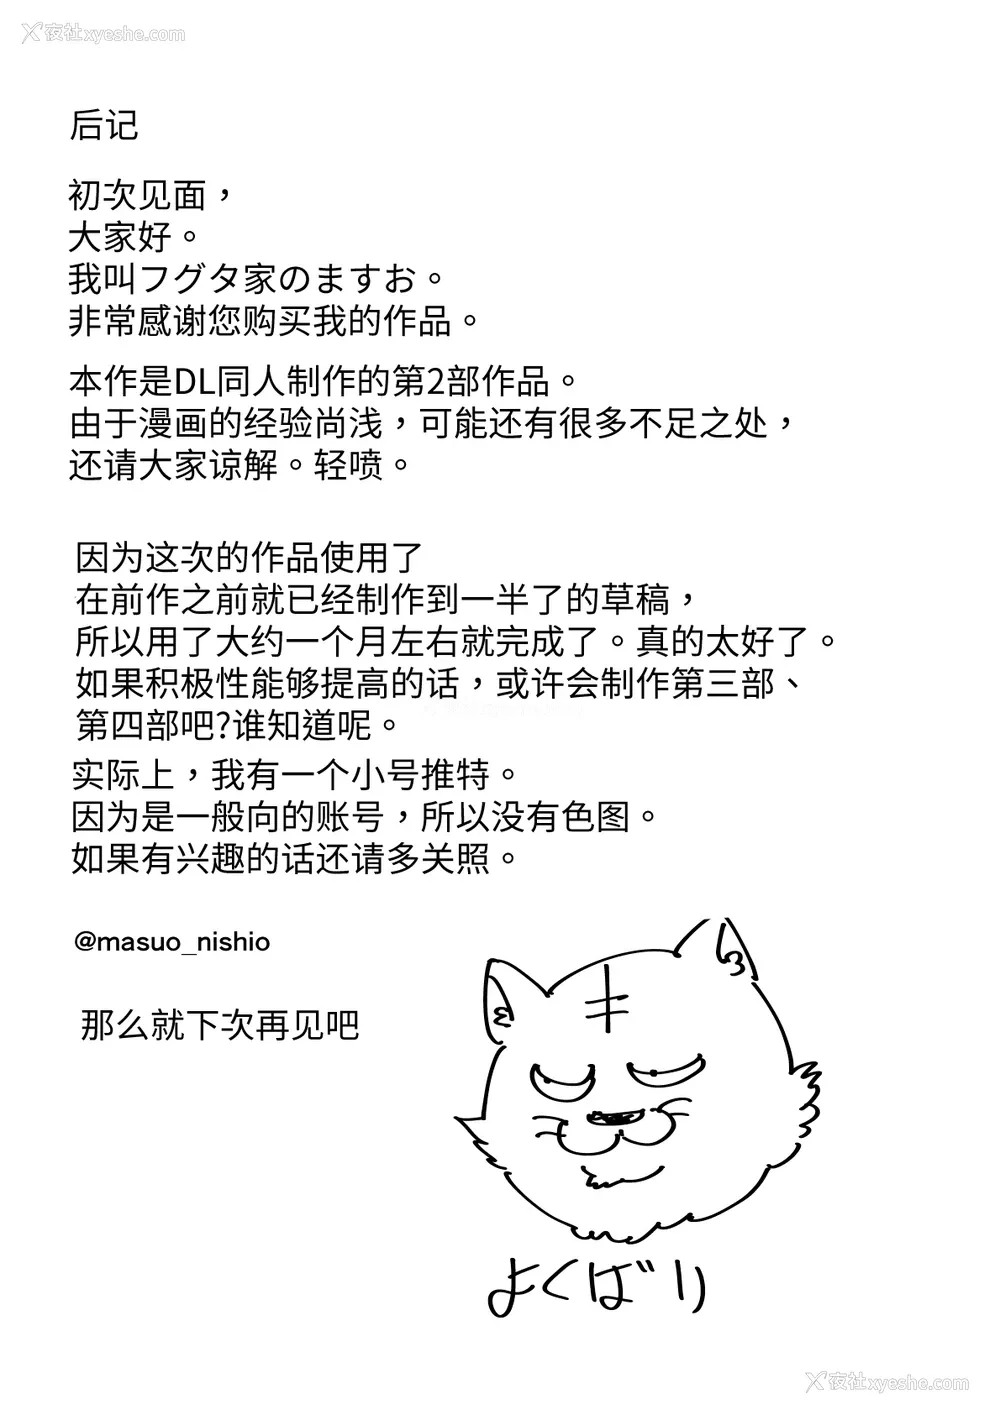 X夜社xyeshe.com
后记
初次见面，
大家好。
我叫フグタ家のますお。
非常感谢您购买我的作品。
本作是DL同人制作的第2部作品。
由于漫画的经验尚浅，可能还有很多不足之处，
还请大家谅解。轻喷。
因为这次的作品使用了
在前作之前就已经制作到一半了的草稿，
所以用了大约一个月左右就完成了。真的太好了。
如果积极性能够提高的话，或许会制作第三部、
第四部吧?谁知道呢。
实际上，我有一个小号推特。
因为是一般向的账号，所以没有色图。
如果有兴趣的话还请多关照。
@masuo_nishio
那么就下次再见吧
よくばり
X夜社xyeshe.com